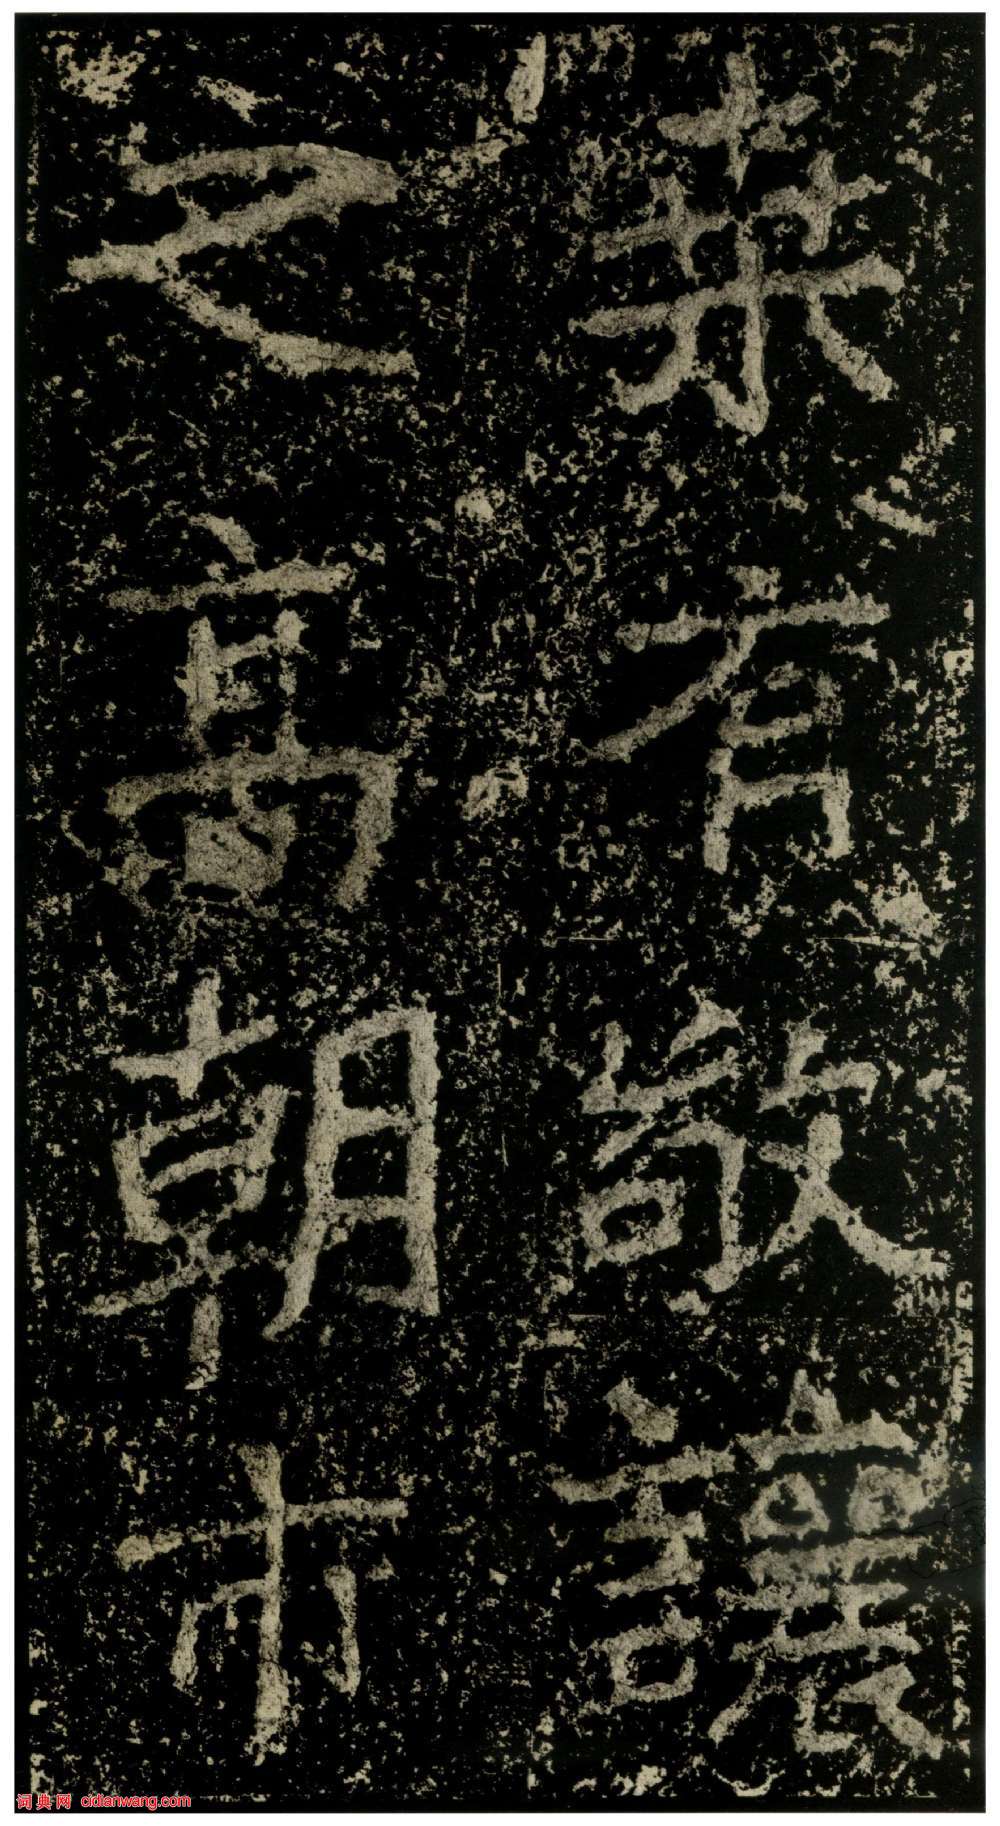 桒有敬讓
之高朝市
词典网 cidianwang.com